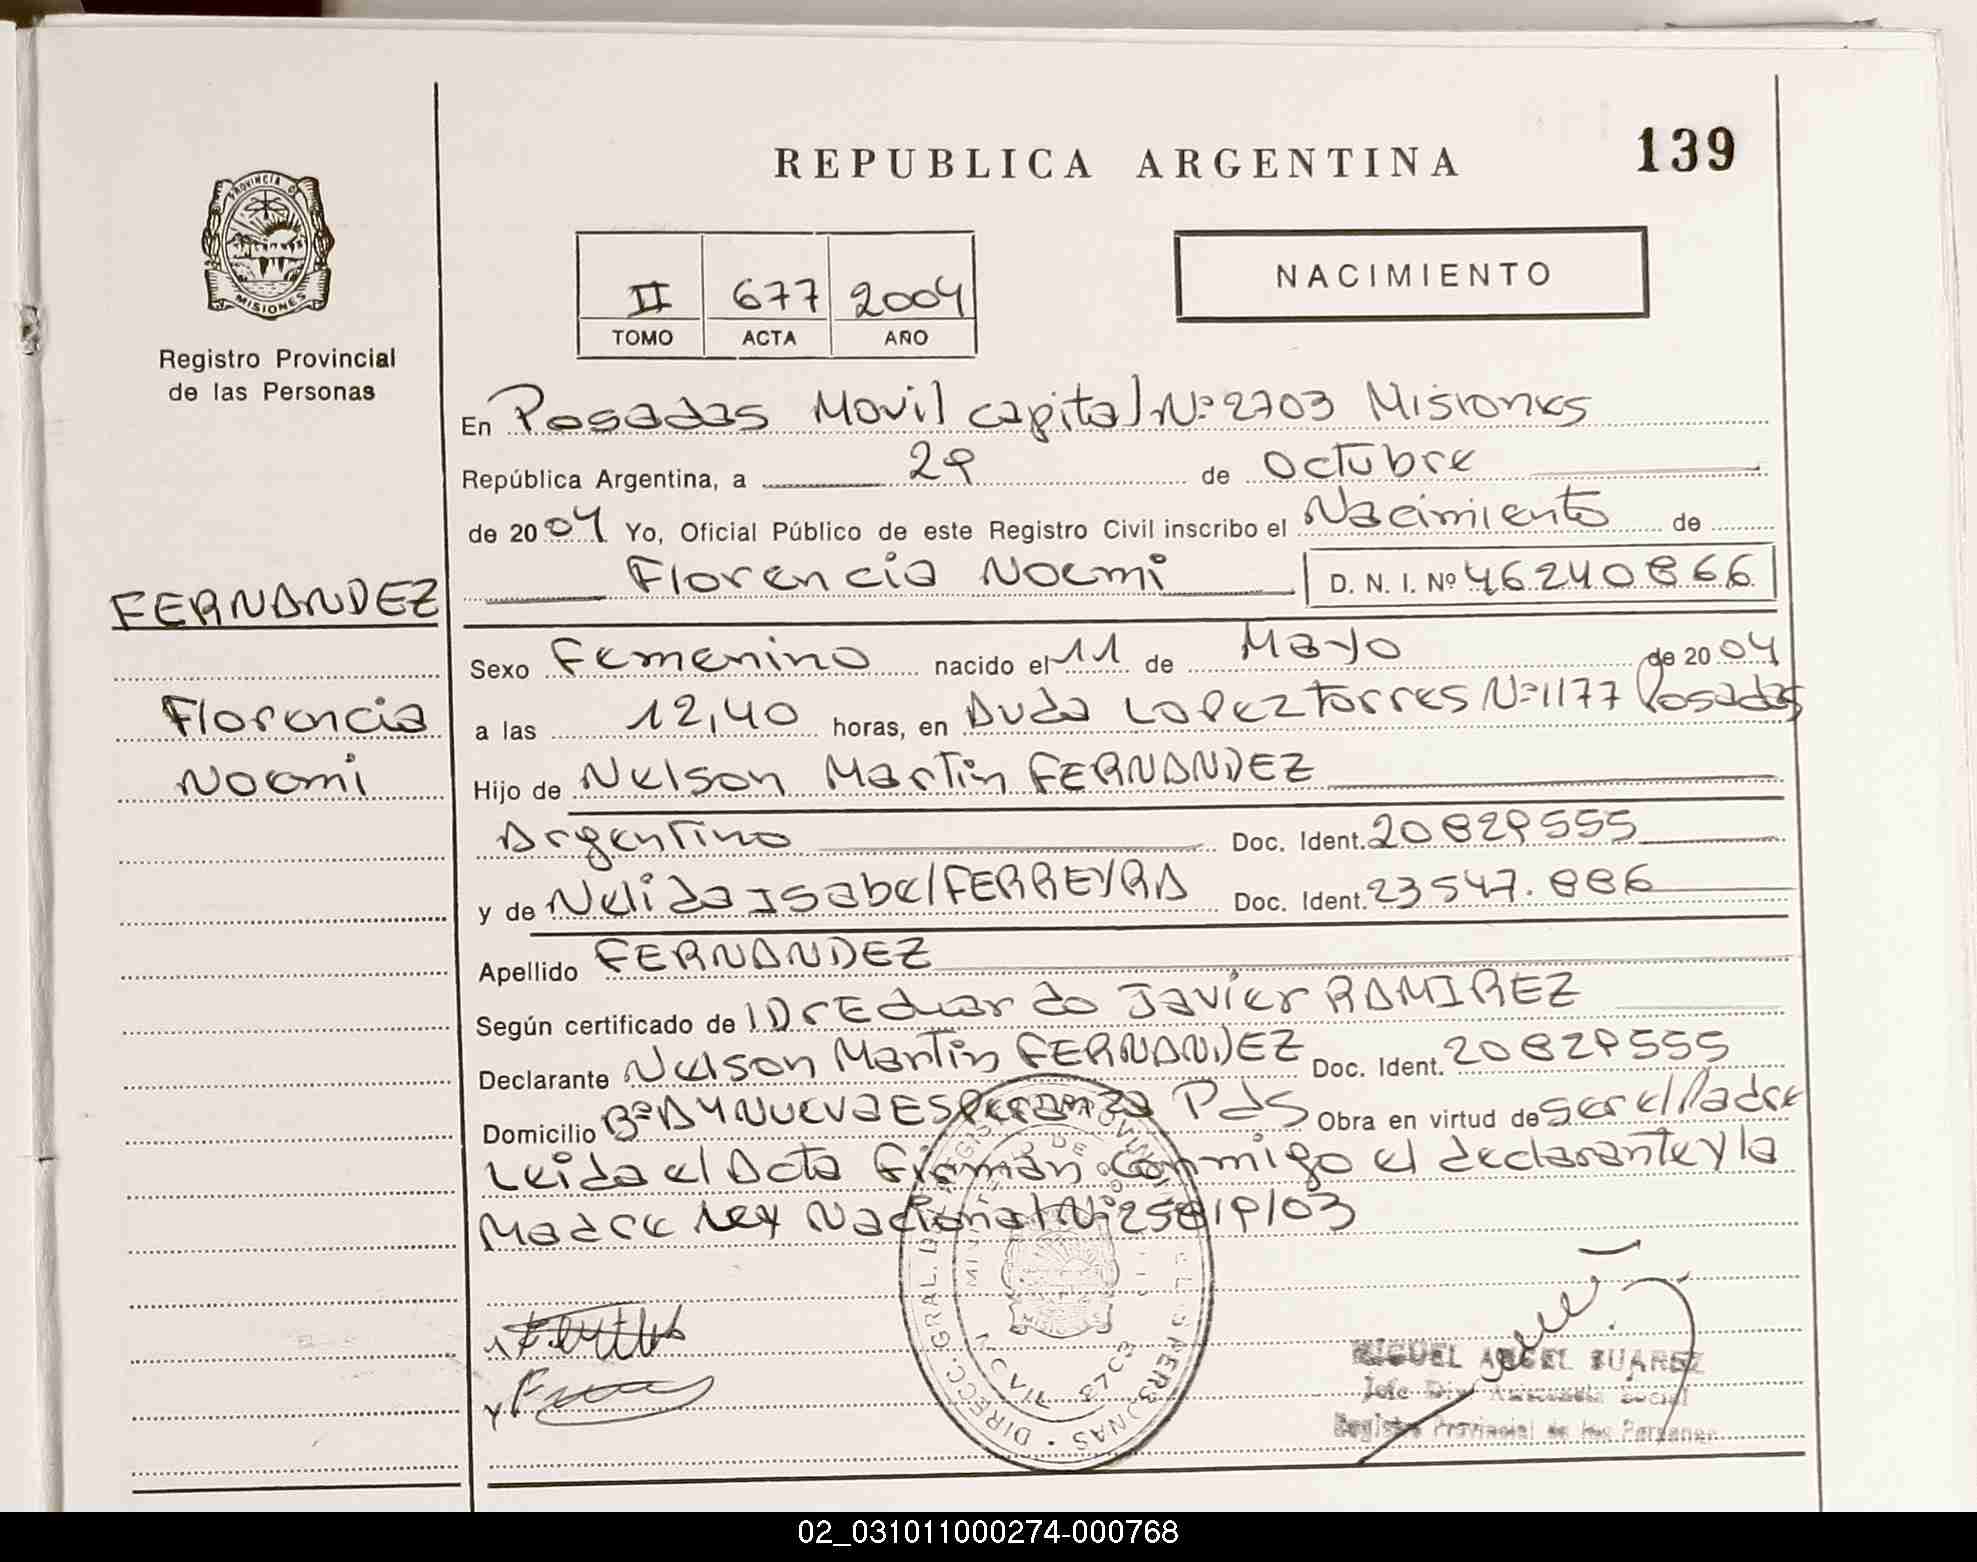 REPUBLICA ARGENTINA
139
PROVINCIA DE
MISIONES
Registro Provincial
de las Personas
II 677 2004
TOMO ACTA AÑO
NACIMIENTO
En Posadas Movil capital Nº 2703 Misiones
República Argentina, a 29 de Octubre
de 2004 Yo, Oficial Público de este Registro Civil inscribo el Nacimiento de
Florencia Noemi D. N. I. Nº 46240866
FERNANDEZ
Florencia
Noemi
Sexo Femenino nacido el 11 de Mayo de 2004
a las 12,40 horas, en Avda LOPEZ Torres Nº 1177 Posadas
Hijo de Nelson Martin FERNANDEZ
Argentino Doc. Ident. 20829555
y de Nelida Isabel FERREYRA Doc. Ident. 23547.886
Apellido FERNANDEZ
Según certificado de Dr Eduardo Javier RAMIREZ
Declarante Nelson Martin FERNANDEZ Doc. Ident. 20829555
Domicilio Bº A4 Nueva Esperanza Pdas Obra en virtud de ser el Padre
Leida el Acta Firman Conmigo el declarante y la
Madre Ley Nacional Nº 25819/03
MIGUEL ANGEL SUAREZ
Jefe Div. Social
Registro Provincial de las Personas
02_031011000274-000768